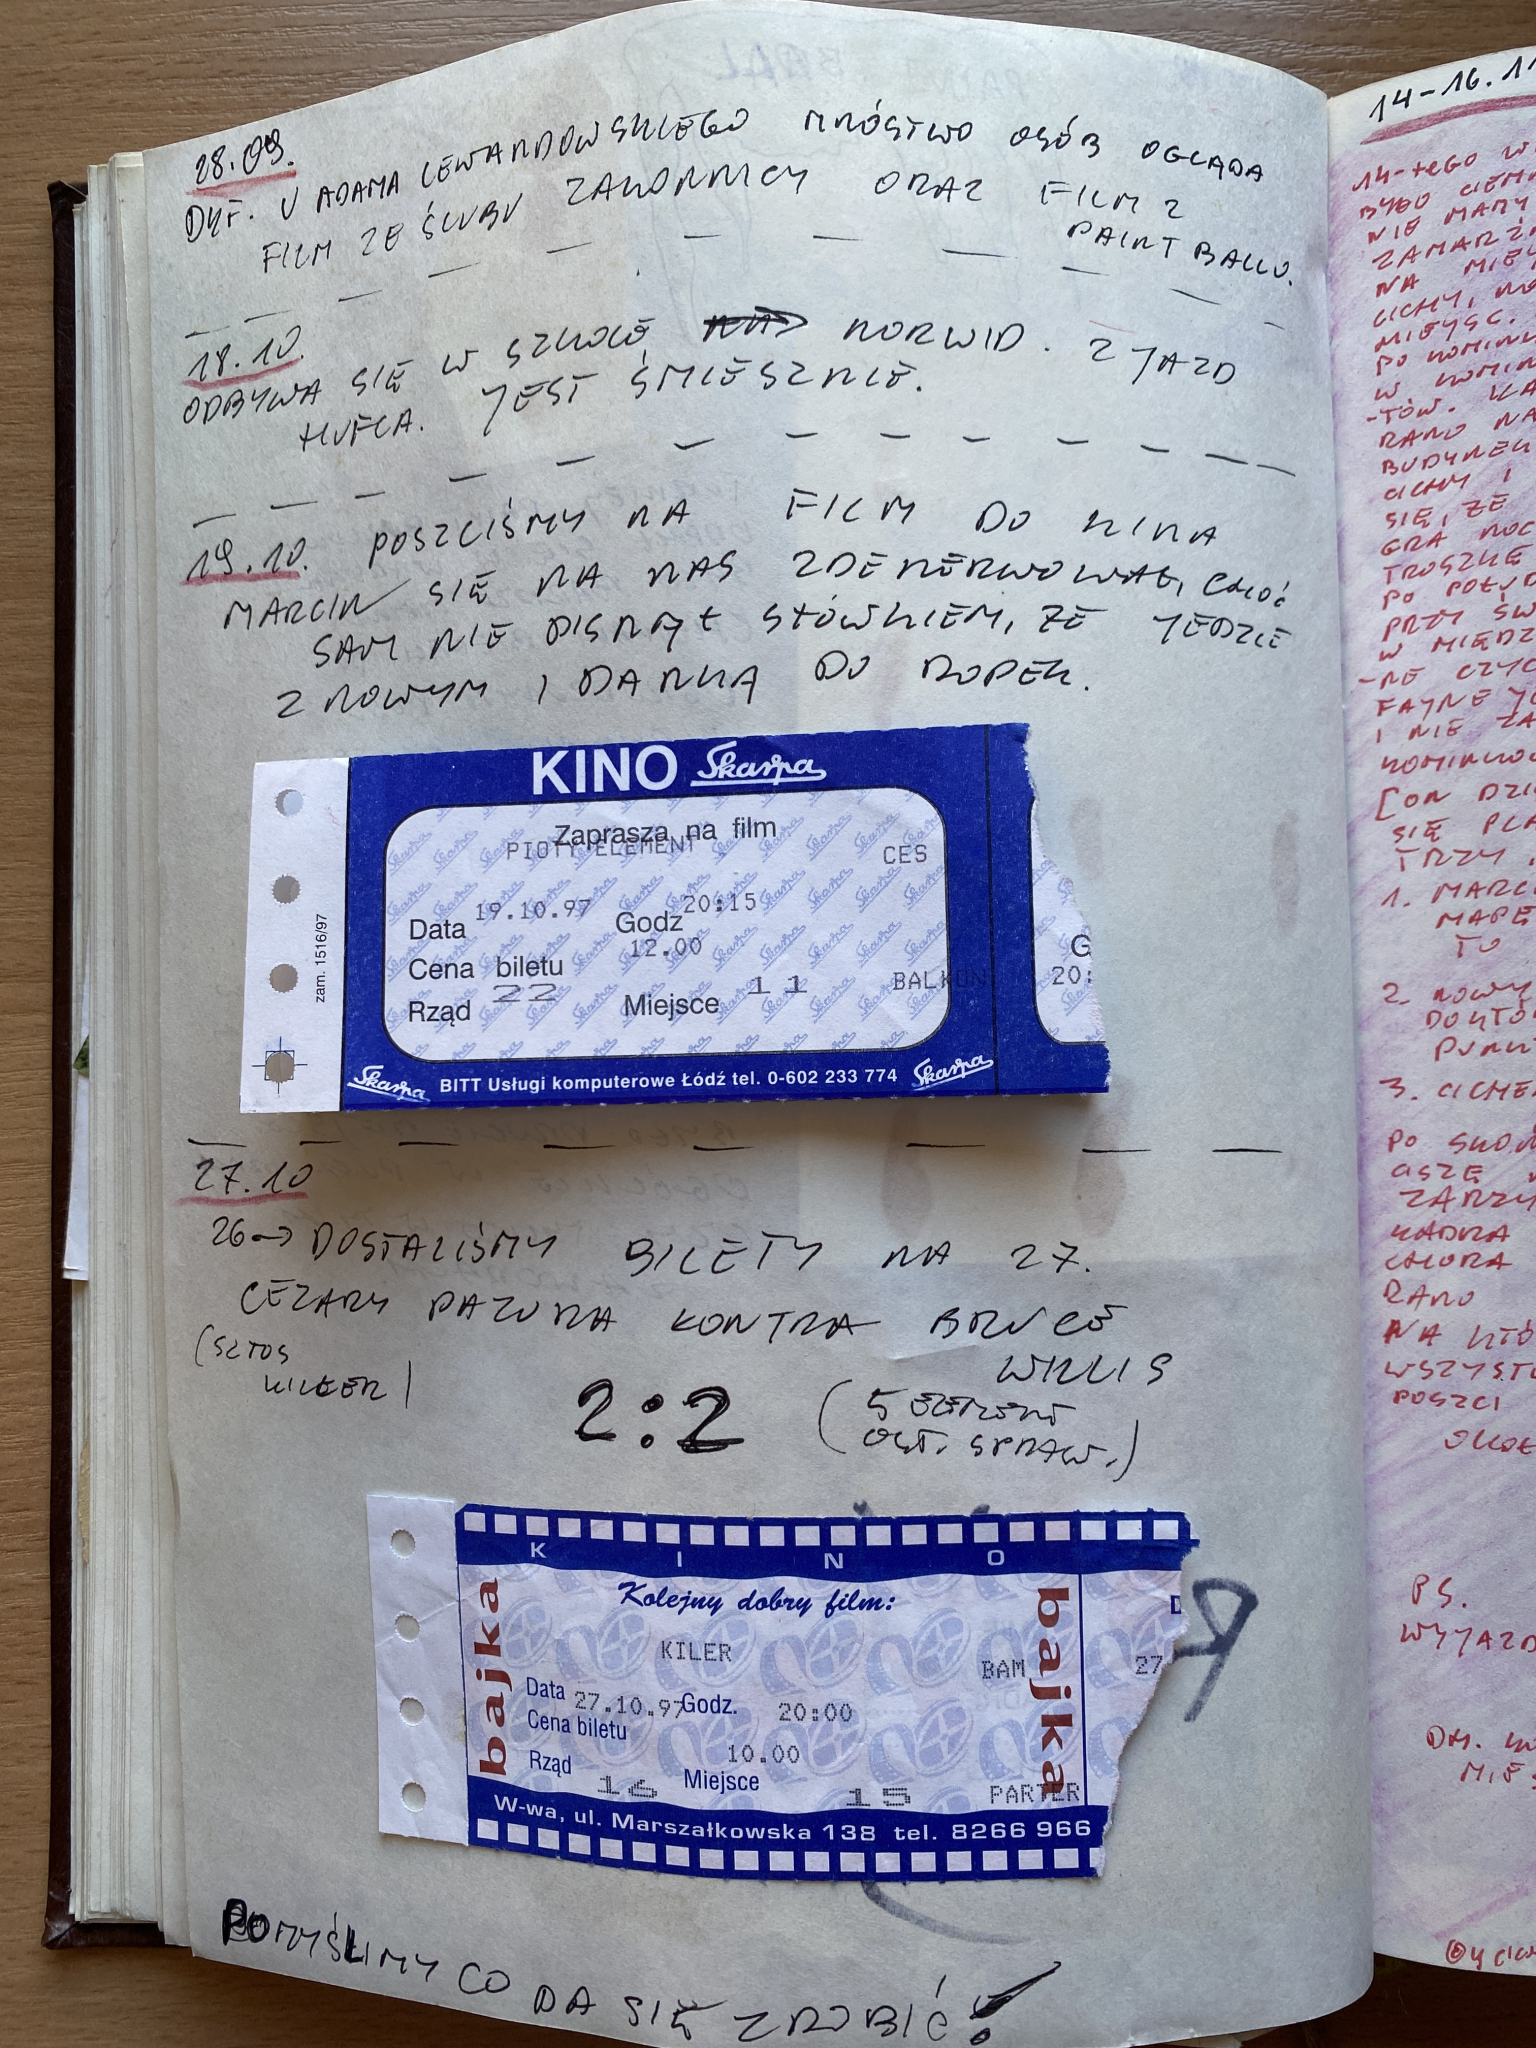 28.09.
DYF. U ADAMA LEWANDOWSKIEGO MNÓSTWO OSÓB OGLĄDA
FILM ZE ŚLUBU ZAKONNICY ORAZ FILM Z
PAINT BALLU.
18.10.
ODBYWA SIĘ W SZKOLE NORWID. ZJAZD
HUFCA. JEST ŚMIESZNIE.
19.10. POSZLIŚMY NA FILM DO KINA
MARCIN SIĘ NA NAS ZDENERWOWAŁ, CHOĆ
SAM NIE PISNĄŁ SŁÓWKIEM, ŻE JEDZIE
Z NOWYM I DANKĄ DO ROPEK.
KINO Skarpa
Zaprasza na film
PIOTY ELEMENT CES
Data 19.10.97 Godz 20:15
Cena biletu 12.00
Rząd 22 Miejsce 11 BALKON
zam. 1516/97
G
20:
Skarpa BITT Usługi komputerowe Łódź tel. 0-602 233 774 Skarpa
27.10
26→ DOSTALIŚMY BILETY NA 27.
CEZARY PAZURA KONTRA BRUCE
WILLIS
(SZTOS
KILLER)
2:2
(5 ELEMENT
OST. SPRAW.)
K I N O
bajka
Kolejny dobry film:
KILER
BAM
27
Data 27.10.97 Godz. 20:00
Cena biletu 10.00
Rząd 16 Miejsce 15 PARTER
bajka
W-wa, ul. Marszałkowska 138 tel. 8266 966
POMYŚLIMY CO DA SIĘ ZROBIĆ!
14-16.11
14-tego W
BYŁO CIEM
NIE MAMY
ZAMARZ
NA MIEJ
CICHY, NO
MIEJSC.
PO KOMINK
W KOMIN
-TÓW. KA
RANO NA
BUDYNEK
CICHY I
SIĘ, ŻE
GRA NOC
TROSZKĘ
PO POŁUD
PRZY ŚW
W MIĘDZ
-NE CZYC
FAJNE JE
I NIE ZA
KOMINKO
[ON DZI
SIĘ PLA
TRZY
1. MARC
MAPE
TO
2. NOWY
DOKTO
PUNKT
3. CICHE
PO SKO
CISZĘ
ZARZĄ
KADRA
CHORA
RANO
NA KTÓ
WSZYST
POSZLI
OKOŁ
PS.
WYJAZD
MIE